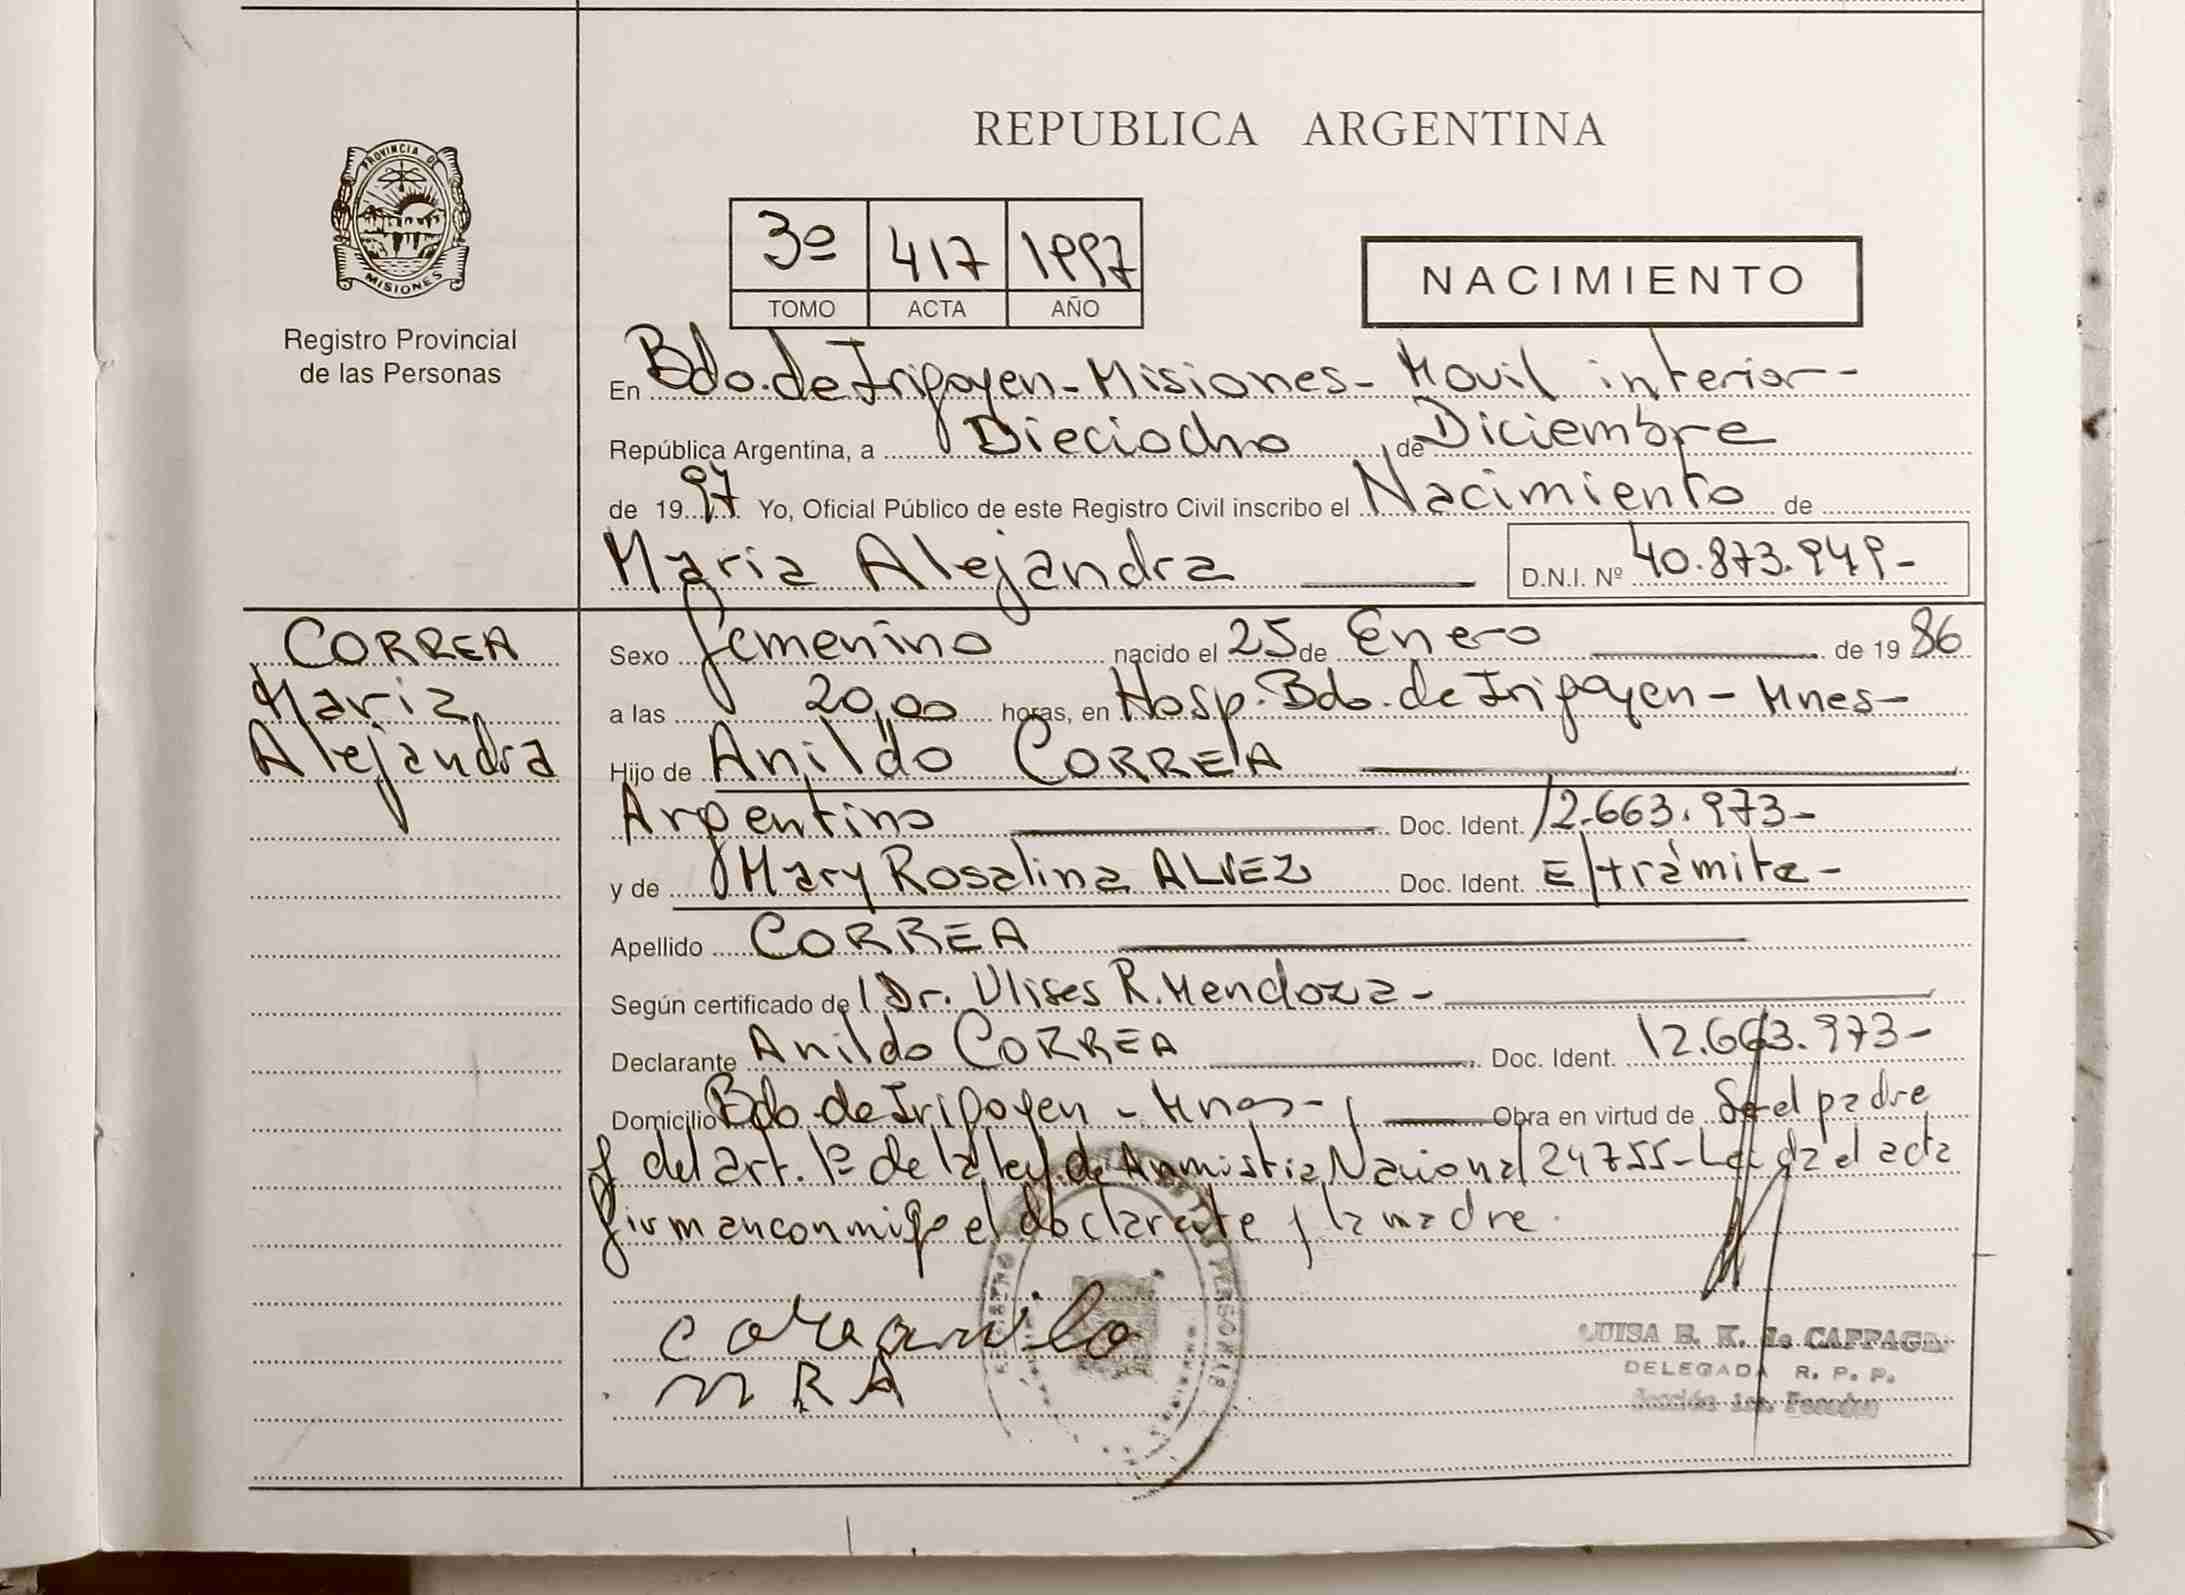 REPUBLICA ARGENTINA
PROVINCIA DE
MISIONES
Registro Provincial
de las Personas
3º 417 1997
TOMO ACTA AÑO
NACIMIENTO
En Bdo. de Irigoyen - Misiones - Movil interior -
República Argentina, a Dieciocho de Diciembre
de 1997 Yo, Oficial Público de este Registro Civil inscribo el Nacimiento de
Maria Alejandra D.N.I. Nº 40.873.949-
CORREA
Maria
Alejandra
Sexo femenino nacido el 25 de Enero de 1986
a las 20,00 horas, en Hosp. Bdo. de Irigoyen - Mnes-
Hijo de Anildo CORREA
Argentino Doc. Ident. 12.663.973-
y de Mary Rosalina ALVEZ Doc. Ident. E/trámite-
Apellido CORREA
Según certificado del Dr. Ulises R. Mendoza-
Declarante Anildo CORREA Doc. Ident. 12.663.973-
Domicilio Bdo. de Irigoyen - Mnes- Obra en virtud de Ser el padre
y del art. 1º de la ley de Anmistia Nacional 24755- Leida el acta
firman conmigo el declarante y la madre.
MRA
LUISA E. K. de
DELEGADA R. P. P.